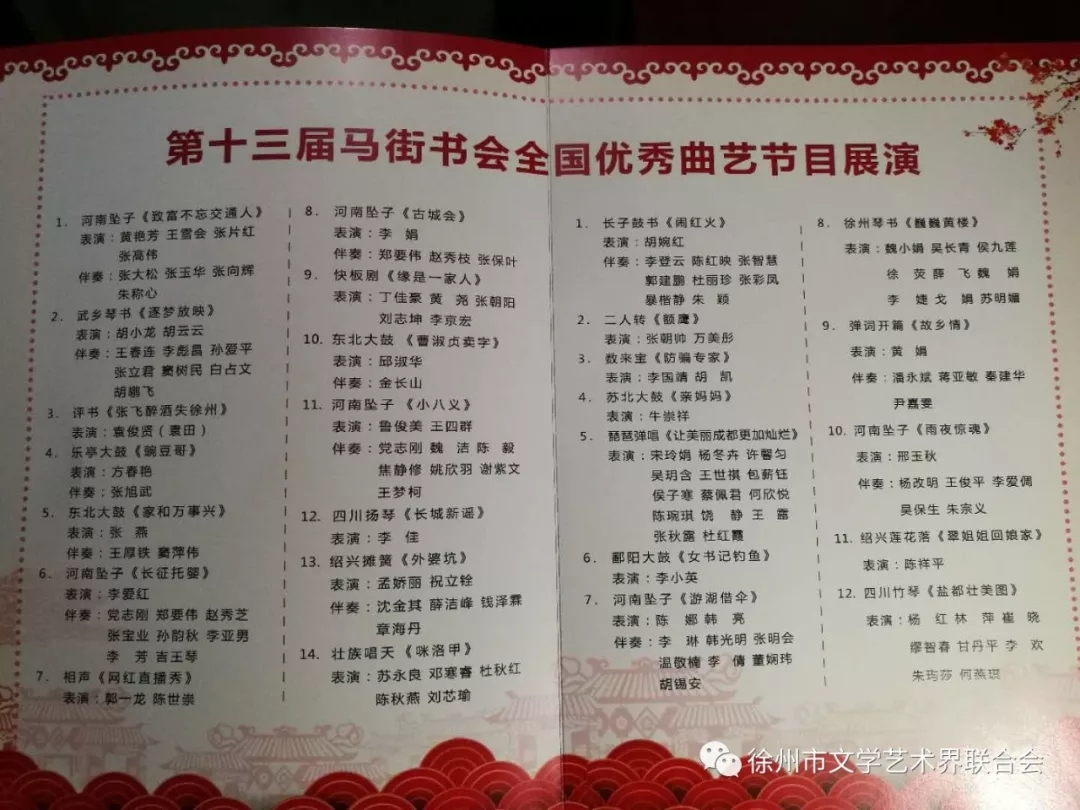 第十三届马街书会全国优秀曲艺节目展演
1. 河南坠子《致富不忘交通人》
表演：黄艳芳 王雪会 张片红
张高伟
伴奏：张大松 张玉华 张向辉
朱称心
2. 武乡琴书《逐梦放映》
表演：胡小龙 胡云云
伴奏：王春连 李彪昌 孙爱平
张立君 窦树民 白占文
胡鹏飞
3. 评书《张飞醉酒失徐州》
表演：袁俊贤（袁田）
4. 乐亭大鼓《豌豆哥》
表演：方春艳
伴奏：张旭武
5. 东北大鼓《家和万事兴》
表演：张 燕
伴奏：王厚铁 窦萍伟
6. 河南坠子《长征托婴》
表演：李爱红
伴奏：党志刚 郑要伟 赵秀芝
张宝业 孙韵秋 李亚男
李 芳 吉王琴
7. 相声《网红直播秀》
表演：郭一龙 陈世崇
8. 河南坠子《古城会》
表演：李 娟
伴奏：郑要伟 赵秀枝 张保叶
9. 快板剧《缘是一家人》
表演：丁佳豪 黄 尧 张朝阳
刘志坤 李京宏
10. 东北大鼓《曹淑贞卖字》
表演：邱淑华
伴奏：金长山
11. 河南坠子《小八义》
表演：鲁俊美 王四群
伴奏：党志刚 魏 洁 陈 毅
焦静修 姚欣羽 谢紫文
王梦柯
12. 四川扬琴《长城新谣》
表演：李 佳
13. 绍兴摊簧《外婆坑》
表演：孟娇丽 祝立铨
伴奏：沈金其 薛洁峰 钱泽霖
章海丹
14. 壮族唱天《咪洛甲》
表演：苏永良 邓寒睿 杜秋红
陈秋燕 刘芯瑜
1. 长子鼓书《闹红火》
表演：胡婉红
伴奏：李登云 陈红映 张智慧
郭建鹏 杜丽珍 张彩凤
暴楷静 朱 颖
2. 二人转《额鹰》
表演：张朝帅 万美彤
3. 数来宝《防骗专家》
表演：李国靖 胡 凯
4. 苏北大鼓《亲妈妈》
表演：牛崇祥
5. 琵琶弹唱《让美丽成都更加灿烂》
表演：宋玲娟 杨冬卉 许馨匀
吴玥含 王世祺 包薪钰
侯子寒 蔡佩君 何欣悦
陈琬琪 饶 静 王 露
张秋露 杜红霞
6. 鄱阳大鼓《女书记钓鱼》
表演：李小英
7. 河南坠子《游湖借伞》
表演：陈 娜 韩 亮
伴奏：李 琳 韩光明 张明会
温敬楠 李 倩 董娴玮
胡锡安
8. 徐州琴书《巍巍黄楼》
表演：魏小娟 吴长青 侯九莲
徐 荧 薛 飞 魏 娟
李 婕 戈 娟 苏明媚
9. 弹词开篇《故乡情》
表演：黄 娟
伴奏：潘永斌 蒋亚敏 秦建华
尹嘉雯
10. 河南坠子《雨夜惊魂》
表演：邢玉秋
伴奏：杨改明 王俊平 李爱倜
吴保生 朱宗义
11. 绍兴莲花落《翠姐姐回娘家》
表演：陈祥平
12. 四川竹琴《盐都壮美图》
表演：杨 红 林 萍 崔 晓
缪智春 甘丹平 李 欢
朱筠莎 何燕琪
徐州市文学艺术界联合会